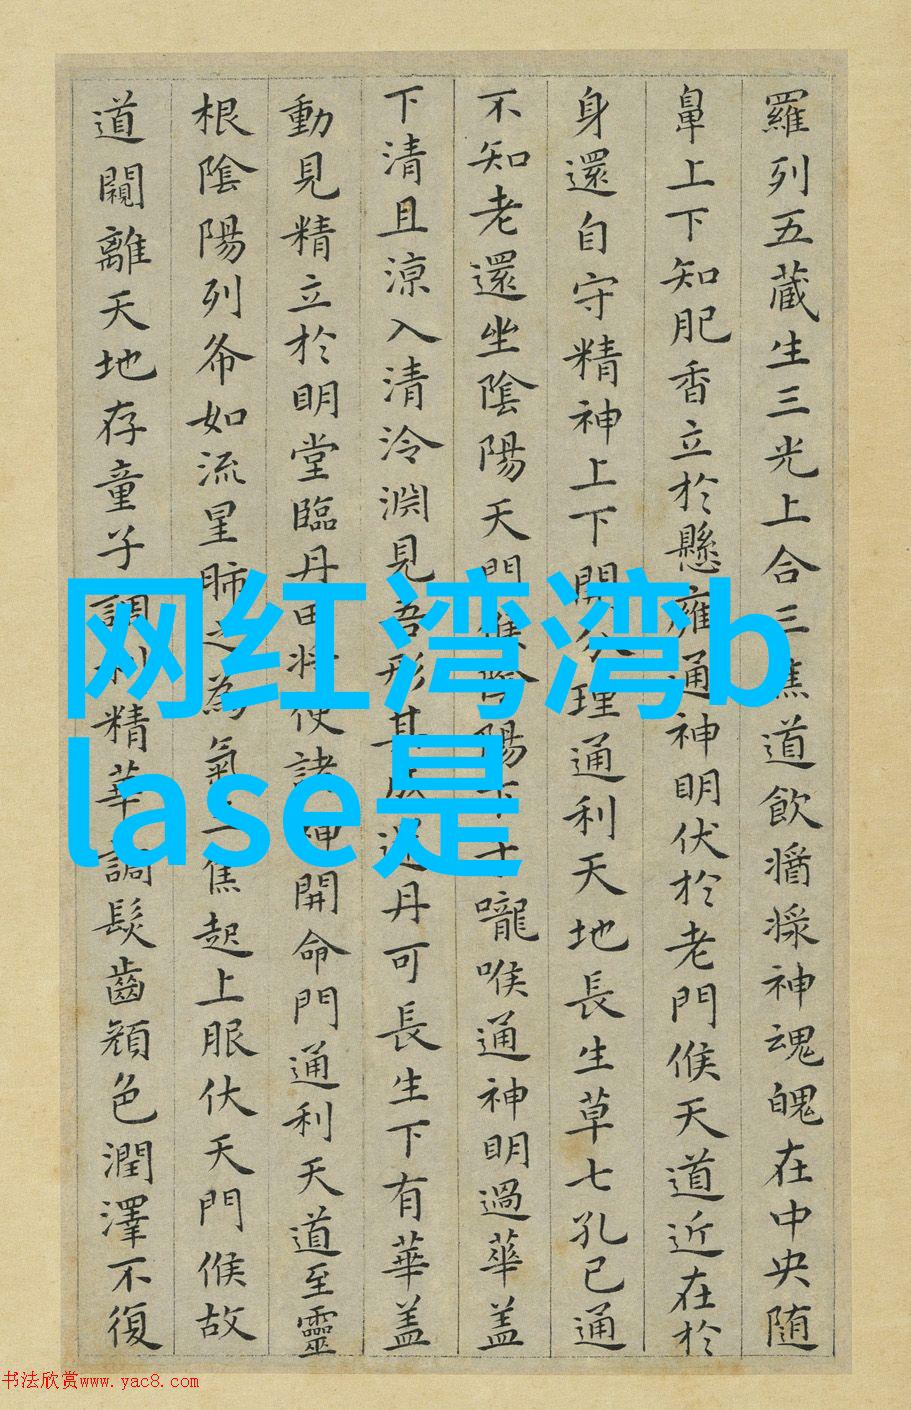 羅列五藏生三光上合三焦道飲漿神魂魄在中央随
鼻上下知肥香立於懸雍通神明伏於老門候天道近在於
身還自守精神上下開分理通利天地長生草七孔已通
不知老還坐陰陽天門候陰陽下于嚨喉通神明過華盖
下清且涼入清泠淵見吾形其成還丹可長生下有華盖
動見精立於明堂臨丹田将使諸神開命門通利天道至靈
根陰陽列布如流星肺之為氣三焦起上服伏天門候故
道闚離天地存童子調利精華調髮齒顏色潤澤不復
网红湾湾b
lase是
书法欣赏www.yac8.com